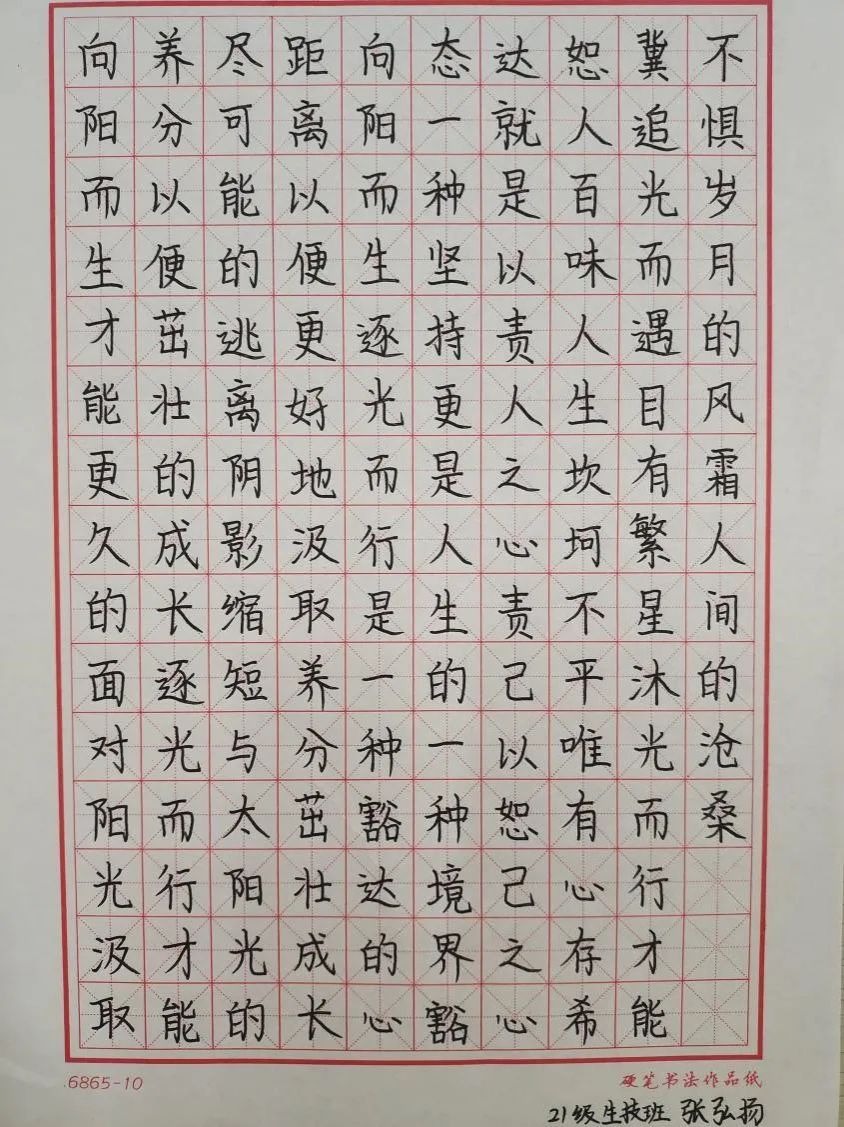 向阳而生才能更久的面对阳光汲取
养分以便茁壮的成长逐光而行才能
尽可能的逃离阴影缩短与太阳光的
距离以便更好地汲取养分茁壮成长
向阳而生逐光而行是一种豁达的心
态一种坚持更是人生的一种境界豁
达就是以责人之心责己以恕己之心
恕人百味人生坎坷不平唯有心存希
冀追光而遇目有繁星沐光而行才能
不惧岁月的风霜人间的沧桑
6865-10
硬笔书法作品纸
21级生技班 张弘扬